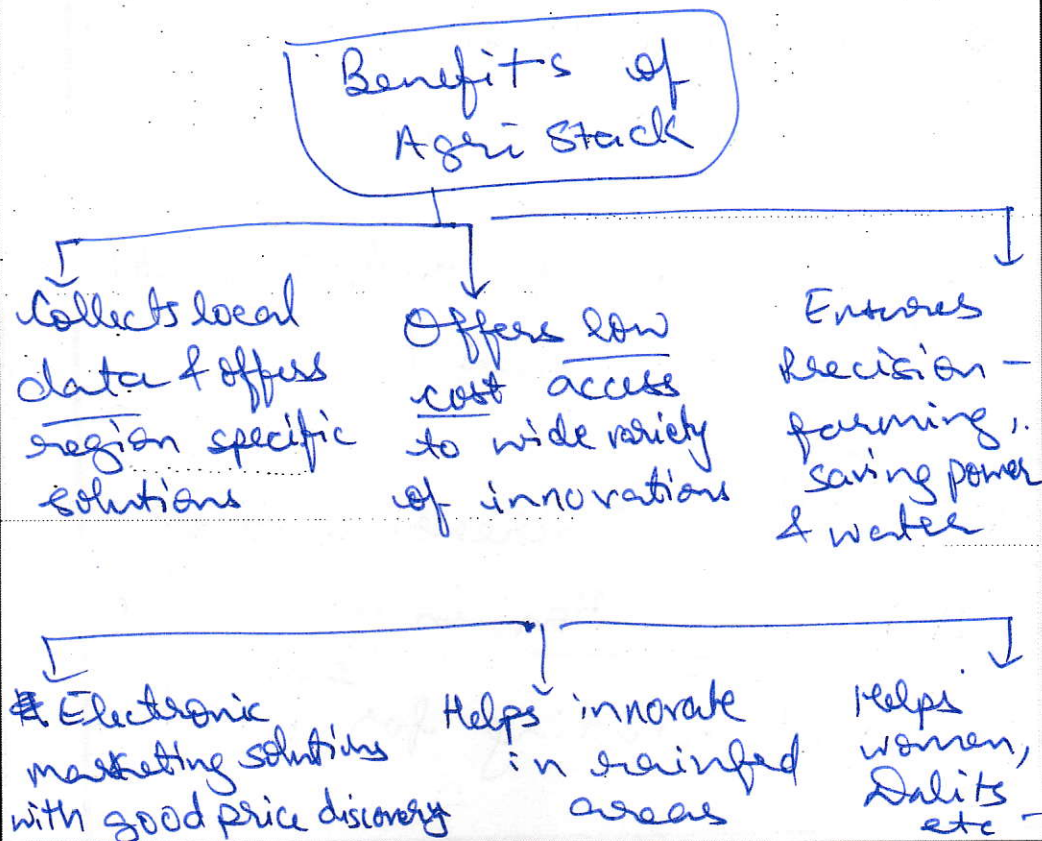 Benefits of
Agri Stack
Collects local
data & offers
region specific
solutions
Offers low
cost access
to wide variety
of innovations
Ensures
Precision -
farming,
saving power
& water
Electronic
marketing solutions
with good price discovery
Helps innovate
in rainfed
areas
Helps
women,
Dalits
etc -